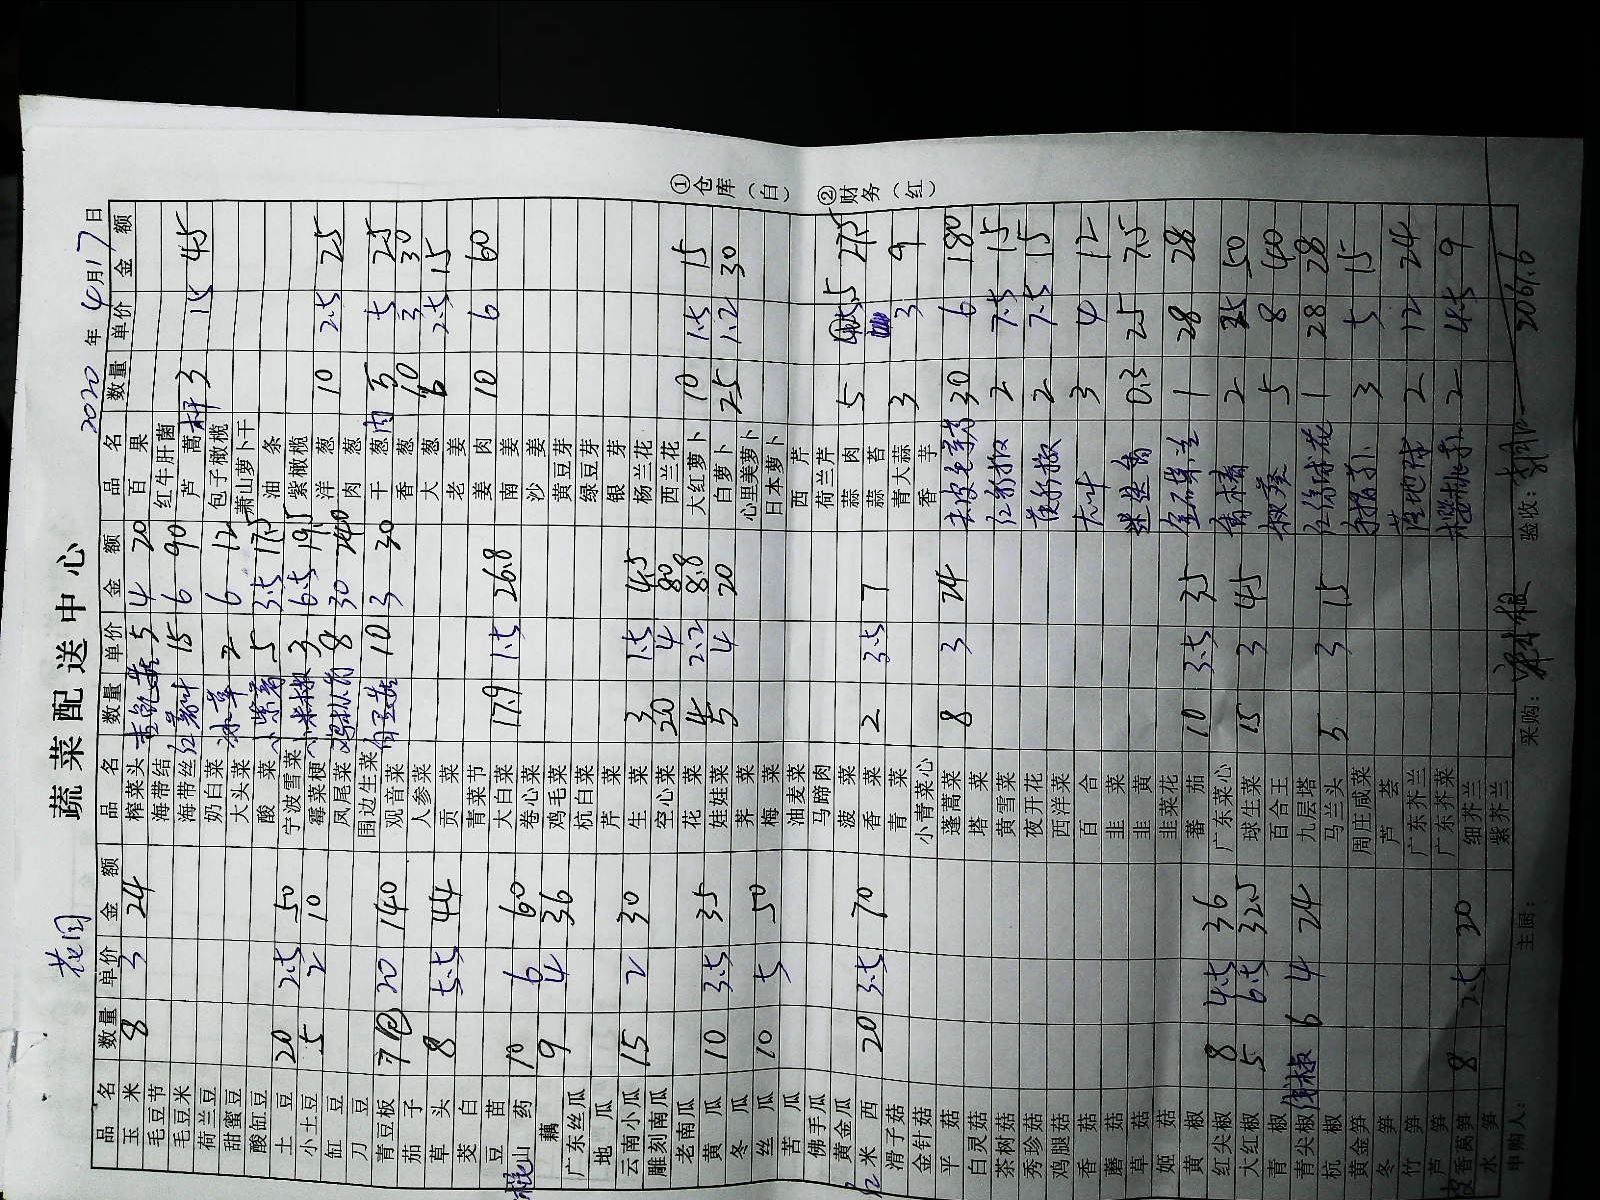 蔬菜配送中心
花园
2020年4月17日
品名 数量 单价 金额 品名 数量 单价 金额 品名 数量 单价 金额
玉米 8 3 24 榨菜头 5 4 20 百果
毛豆节 海带结 15 6 90 红牛肝菌
毛豆米 海带丝 芦蒿 3 15 45
荷兰豆 奶白菜 2 6 12 包子橄榄
甜蜜豆 大头菜 萧山萝卜干
酸缸豆 酸菜 5 3.5 17.5 油条
土豆 20 2.5 50 宁波雪菜 小米椒 3 6.5 19.5 紫橄榄
小土豆 5 2 10 霉菜梗 8 30 240 洋葱 10 2.5 25
缸豆 凤尾菜 肉葱
刀豆 围边生菜 10 3 30 干葱肉 5 5 25
青豆板 7 20 140 观音菜 香葱 10 3 30
茄子 人参菜 大葱 6 2.5 15
草头 8 5.5 44 贡菜 老姜
茭白 青菜节 姜肉 10 6 60
豆苗 大白菜 17.9 1.5 26.8 南姜
山药 10 6 60 卷心菜 沙姜
藕 9 4 36 鸡毛菜 黄豆芽
广东丝瓜 杭白菜 绿豆芽
地瓜 芹菜 银芽
云南小瓜 15 2 30 生菜 3 1.5 4.5 杨兰花
雕刻南瓜 空心菜 20 4 80 西兰花
老南瓜 花菜 4 2.2 8.8 大红萝卜 10 1.5 15
黄瓜 10 3.5 35 娃娃菜 5 4 20 白萝卜 25 1.2 30
冬瓜 荠菜 心里美萝卜
丝瓜 10 5 50 梅菜 日本萝卜
苦瓜 油麦菜 西芹
佛手瓜 马蹄肉 荷兰芹
黄金瓜 菠菜 蒜肉 5 5.5 27.5
红米西 20 3.5 70 香菜 2 3.5 7 蒜苔
滑子菇 青菜 青大蒜 3 3 9
金针菇 小青菜心 香芋
平菇 蓬蒿菜 8 3 24 30 6 180
白灵菇 塔菜
茶树菇 黄雪菜 2 7.5 15
秀珍菇 夜开花 2 7.5 15
鸡腿菇 西洋菜
香菇 百合 3 4 12
蘑菇 韭菜
草菇 韭黄 迷迭香 0.3 25 7.5
姬菇 韭菜花
黄椒 蕃茄 10 3.5 35 1 28 28
红尖椒 8 4.5 36 广东菜心 2 25 50
大红椒 5 6.5 32.5 球生菜 15 3 45
青椒 百合王 秋葵 5 8 40
青尖椒 线椒 6 4 24 九层塔 1 28 28
杭椒 马兰头 5 3 15
黄金笋 周庄咸菜 3 5 15
冬笋 芦荟
竹笋 广东芥兰 2 12 24
芦笋 广东芥菜
香莴笋 8 2.5 20 细芥兰 2 4.5 9
水笋 紫芥兰
申购人： 主厨： 采购： 验收： 2061.6
①仓库（白）
②财务（红）